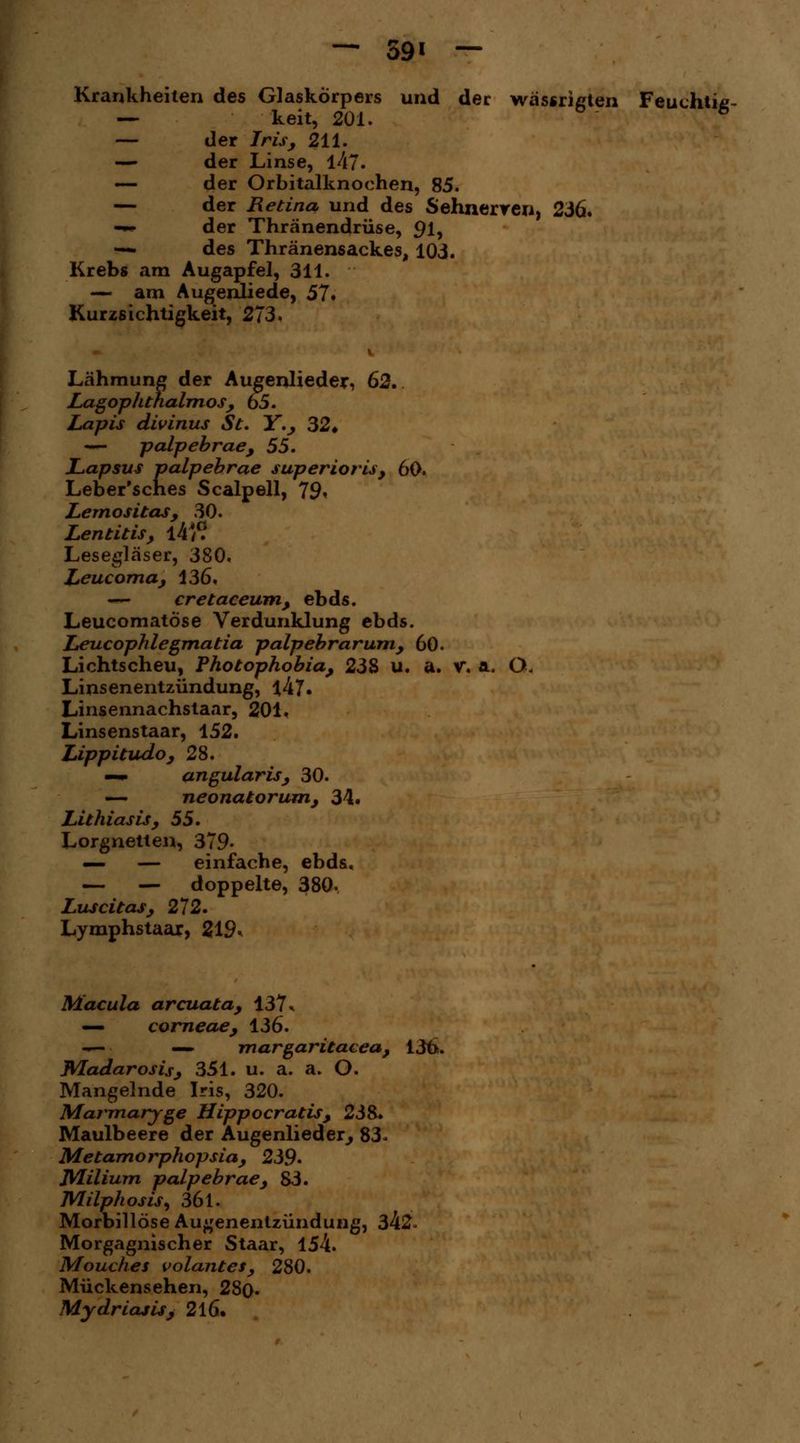 — 391 —
Krankheiten des Glaskörpers und der wässrigten Feuchtig-
— keit, 201.
— der Iris, 211.
— der Linse, 147.
— der Orbitalknochen, 85.
— der Retina und des Sehnerven, 236.
— der Thränendrüse, 91,
— des Thränensackes, 103.
Krebs am Augapfel, 311.
— am Augenliede, 57.
Kurzsichtigkeit, 273.
Lähmung der Augenlieder, 62.
Lagophthalmos, 65.
Lapis divinus St. Y., 32.
— palpebrae, 55.
Lapsus palpebrae superioris, 60.
Leber'sches Scalpell, 79.
Lemositas, 30.
Lentitis, 147.
Lesegläser, 380.
Leucoma, 136.
— cretaceum, ebds.
Leucomatöse Verdunklung ebds.
Leucophlegmatia palpebrarum, 60.
Lichtscheu, Photophobia, 238 u. a. v. a. O.
Linsenentzündung, 147.
Linsennachstaar, 201.
Linsenstaar, 152.
Lippitudo, 28.
— angularis, 30.
— neonatorum, 34.
Lithiasis, 55.
Lorgnetten, 379.
— — einfache, ebds.
— — doppelte, 380.
Luscitas, 272.
Lymphstaar, 219.
Macula arcuata, 137.
— corneae, 136.
— — margaritacea, 136.
Madarosis, 351. u. a. a. O.
Mangelnde Iris, 320.
Marmaryge Hippocratis, 238.
Maulbeere der Augenlieder, 83.
Metamorphopsia, 239.
Milium palpebrae, 83.
Milphosis, 361.
Morbillöse Augenentzündung, 342.
Morgagnischer Staar, 154.
Mouches volantes, 280.
Mückensehen, 280.
Mydriasis, 216.